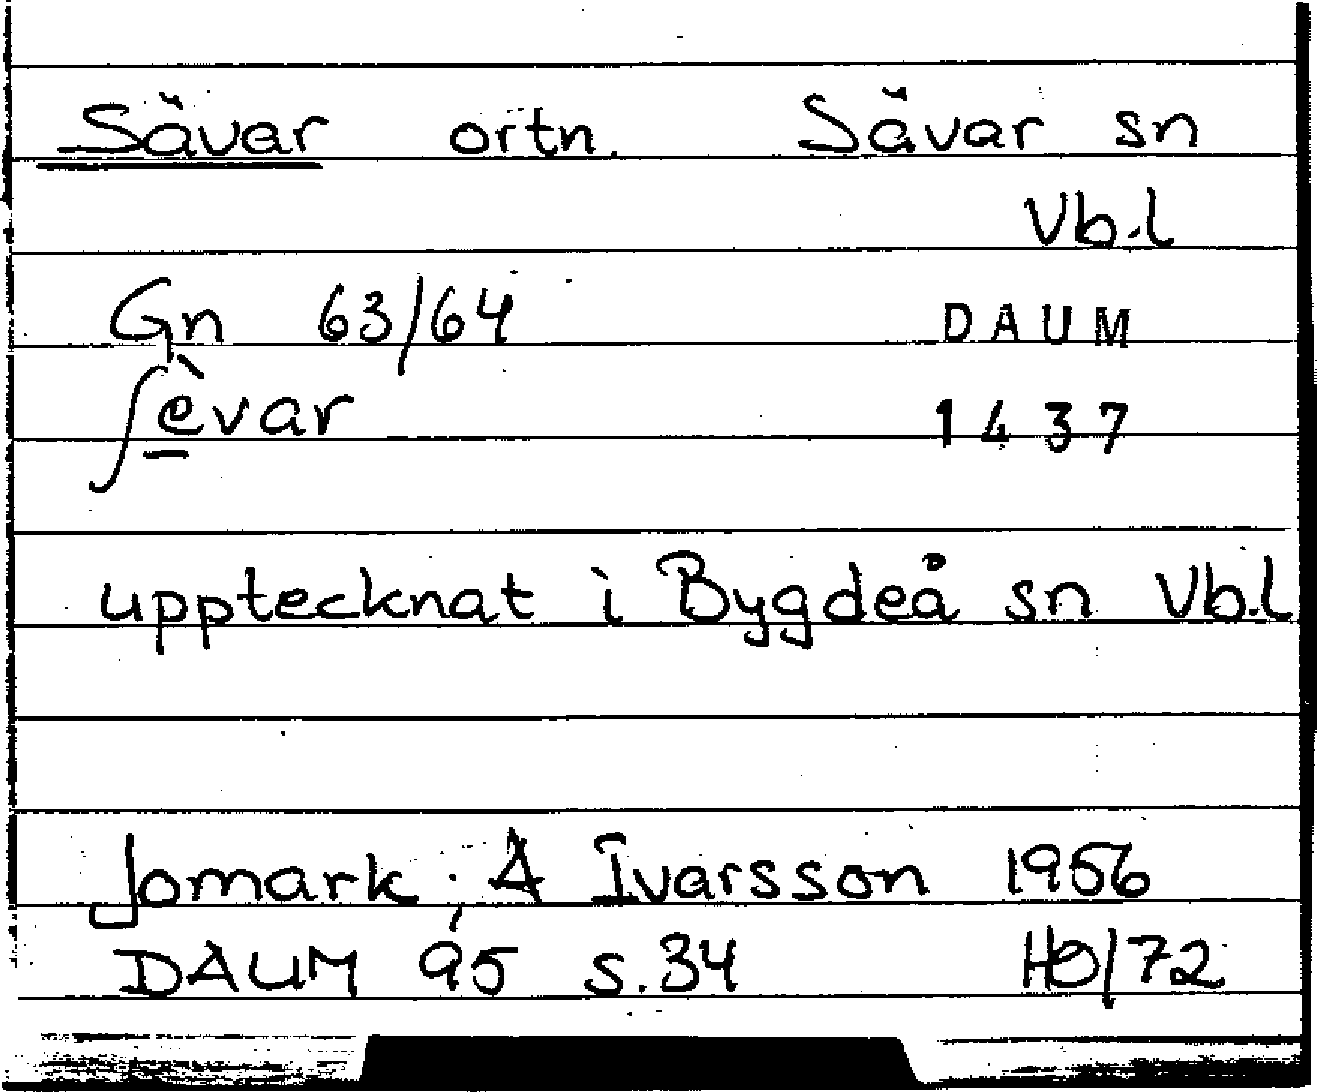 Sävar ortn. Sävar sn
Vb.l
Gn 63/64 DAUM
ʃè̱var 1437
upptecknat i Bygdeå sn Vb.l
Jomark; A Ivarsson 1956
DAUM 95 s.34 HO/72